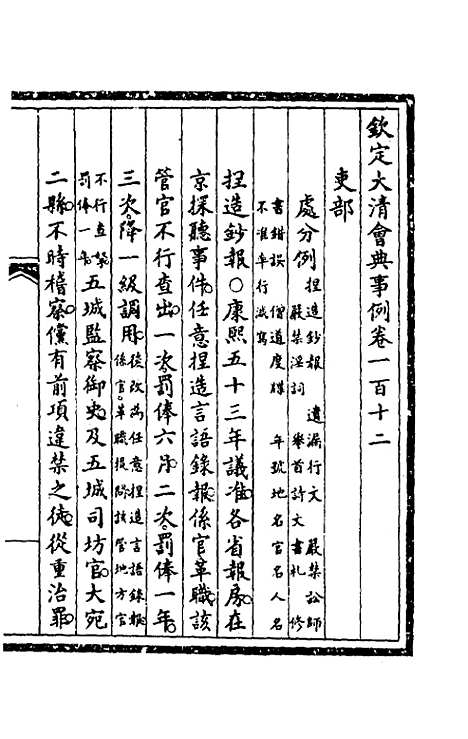 欽定大清會典事例卷一百十二
吏部
處分例
捏造鈔報　遺漏行文　嚴禁訟師
嚴禁淫詞　舉首詩文　書札　修
書錯誤　僧道度牒　年號地名官名人名
不准率行減寫
捏造鈔報○康熙五十三年議准各省報房在
京探聽事件任意捏造言語錄報係官革職該
管官不行查出一次罰俸六月二次罰俸一年
三次降一級調用
後改為任意捏造言語錄報
係官革職投隊該管地方官
不行查禁
罰俸一年
五城監察御史及五城司坊官大宛
二縣不時稽察儻有前項違禁之徒從重治罪